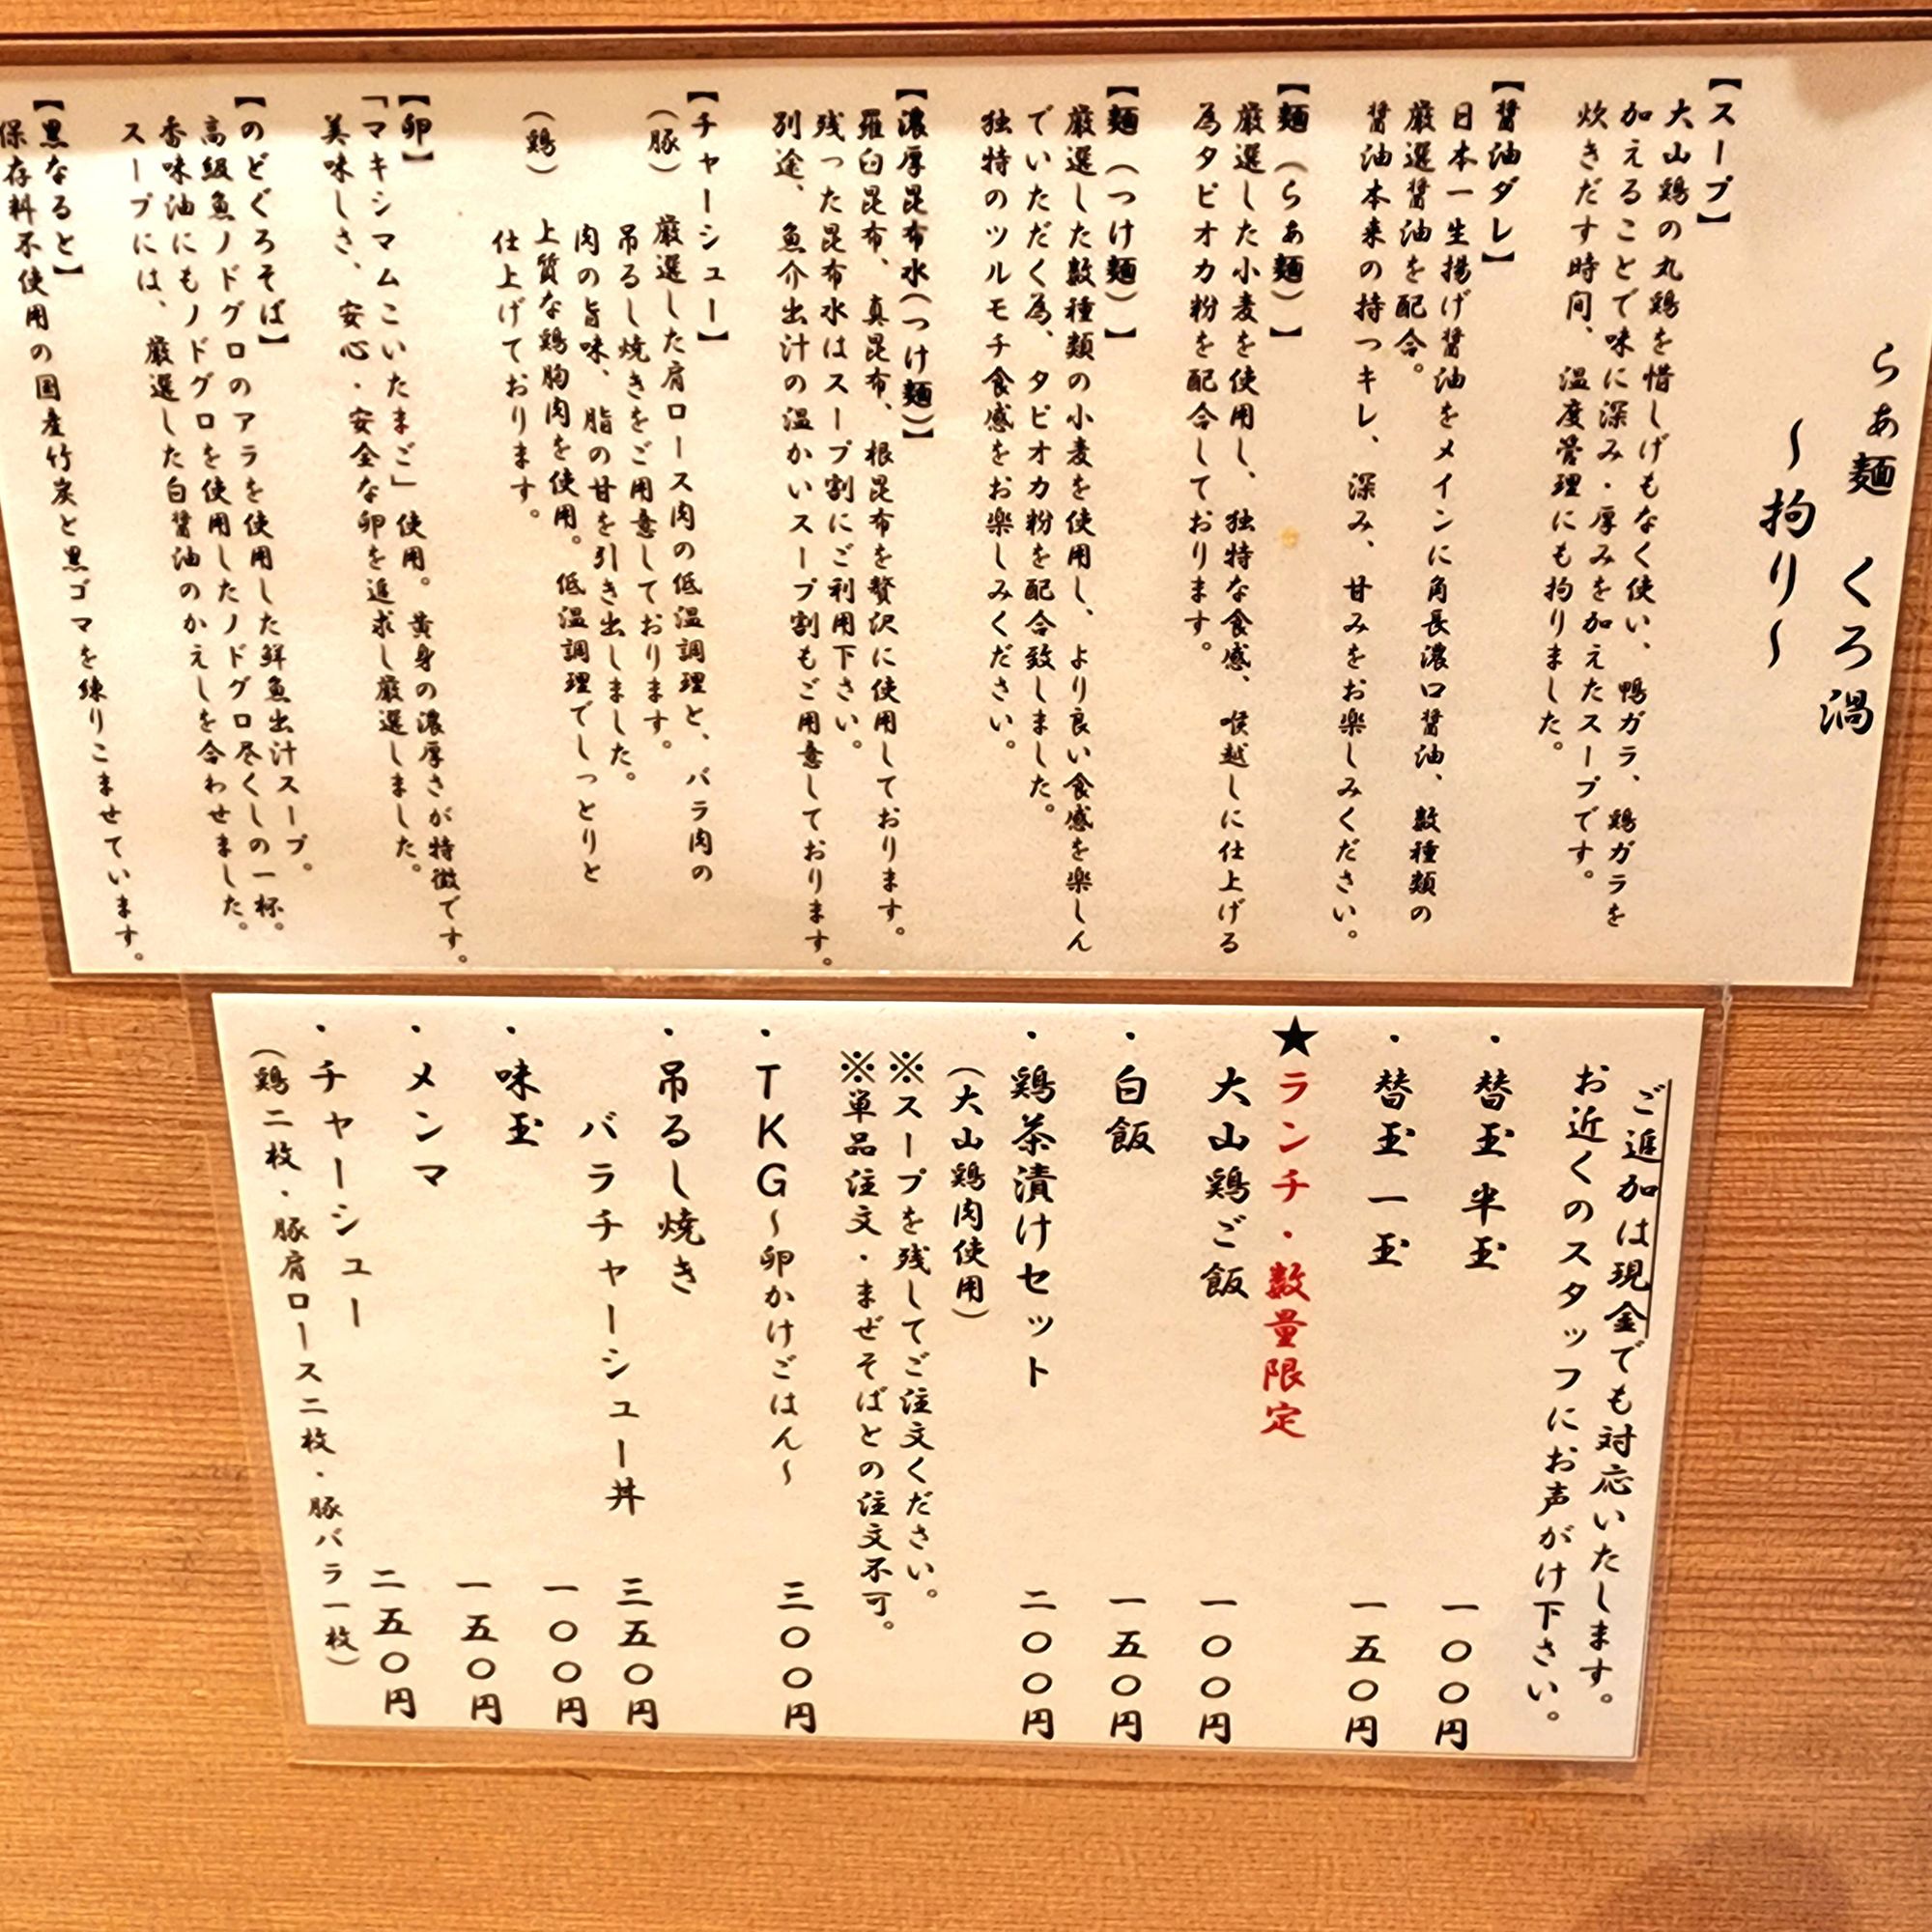 らぁ麺 くろ渦
～拘り～
【スープ】
大山鶏の丸鶏を惜しげもなく使い、鴨ガラ、鶏ガラを
加えることで味に深み・厚みを加えたスープです。
炊きだす時間、温度管理にも拘りました。
【醤油ダレ】
日本一生揚げ醤油をメインに角長濃口醤油、数種類の
厳選醤油を配合。
醤油本来の持つキレ、深み、甘みをお楽しみください。
【麺（らぁ麺）】
厳選した小麦を使用し、独特な食感、喉越しに仕上げる
為タピオカ粉を配合しております。
【麺（つけ麺）】
厳選した数種類の小麦を使用し、より良い食感を楽しん
でいただく為、タピオカ粉を配合致しました。
独特のツルモチ食感をお楽しみください。
【濃厚昆布水（つけ麺）】
羅臼昆布、真昆布、根昆布を贅沢に使用しております。
残った昆布水はスープ割にご利用下さい。
別途、魚介出汁の温かいスープ割もご用意しております。
【チャーシュー】
（豚） 厳選した肩ロース肉の低温調理と、バラ肉の
吊るし焼きをご用意しております。
肉の旨味、脂の甘を引き出しました。
（鶏） 上質な鶏胸肉を使用。低温調理でしっとりと
仕上げております。
【卵】
「マキシマムこいたまご」使用。黄身の濃厚さが特徴です。
美味しさ、安心・安全な卵を追求し厳選しました。
【のどぐろそば】
高級魚ノドグロのアラを使用した鮮魚出汁スープ。
香味油にもノドグロを使用したノドグロ尽くしの一杯。
スープには、厳選した白醤油のかえしを合わせました。
【黒なると】
保存料不使用の国産竹炭と黒ゴマを練りこませています。
ご追加は現金でも対応いたします。
お近くのスタッフにお声がけ下さい。
・替玉 半玉 一〇〇円
・替玉 一玉 一五〇円
★ランチ・数量限定
大山鶏ご飯 一〇〇円
・白飯 一五〇円
・鶏茶漬けセット 二〇〇円
（大山鶏肉使用）
※スープを残してご注文ください。
※単品注文・まぜそばとの注文不可。
・TKG～卵かけごはん～ 三〇〇円
・吊るし焼き
バラチャーシュー丼 三五〇円
・味玉 一〇〇円
・メンマ 一五〇円
・チャーシュー 二五〇円
（鶏二枚・豚肩ロース二枚・豚バラ一枚）